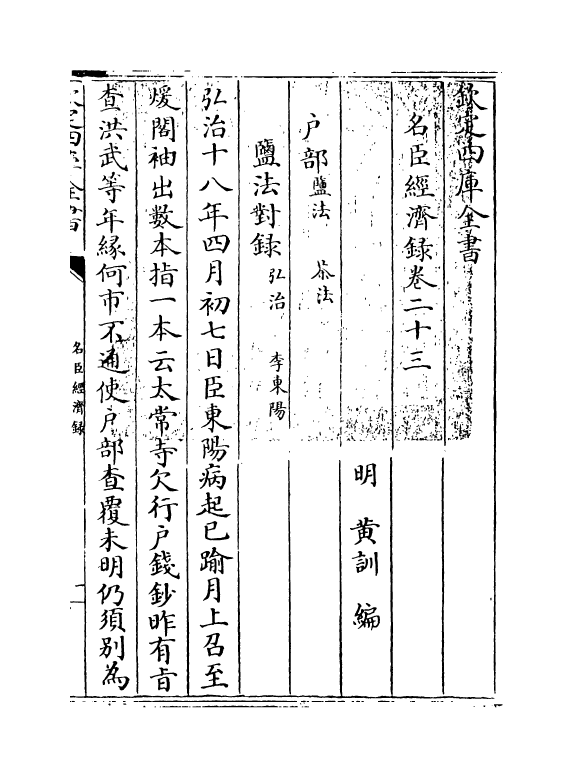 欽定四庫全書
名臣經濟録卷二十三
明 黄訓 編
户部鹽法 茶法
鹽法對録弘治 李東陽
弘治十八年四月初七日臣東陽病起已踰月上召至
煖閣袖出數本指一本云太常寺欠行户錢鈔昨有㫖
查洪武等年緣何市不通使户部查覆未明仍須别為
欽定四庫全書
名臣經濟録
一